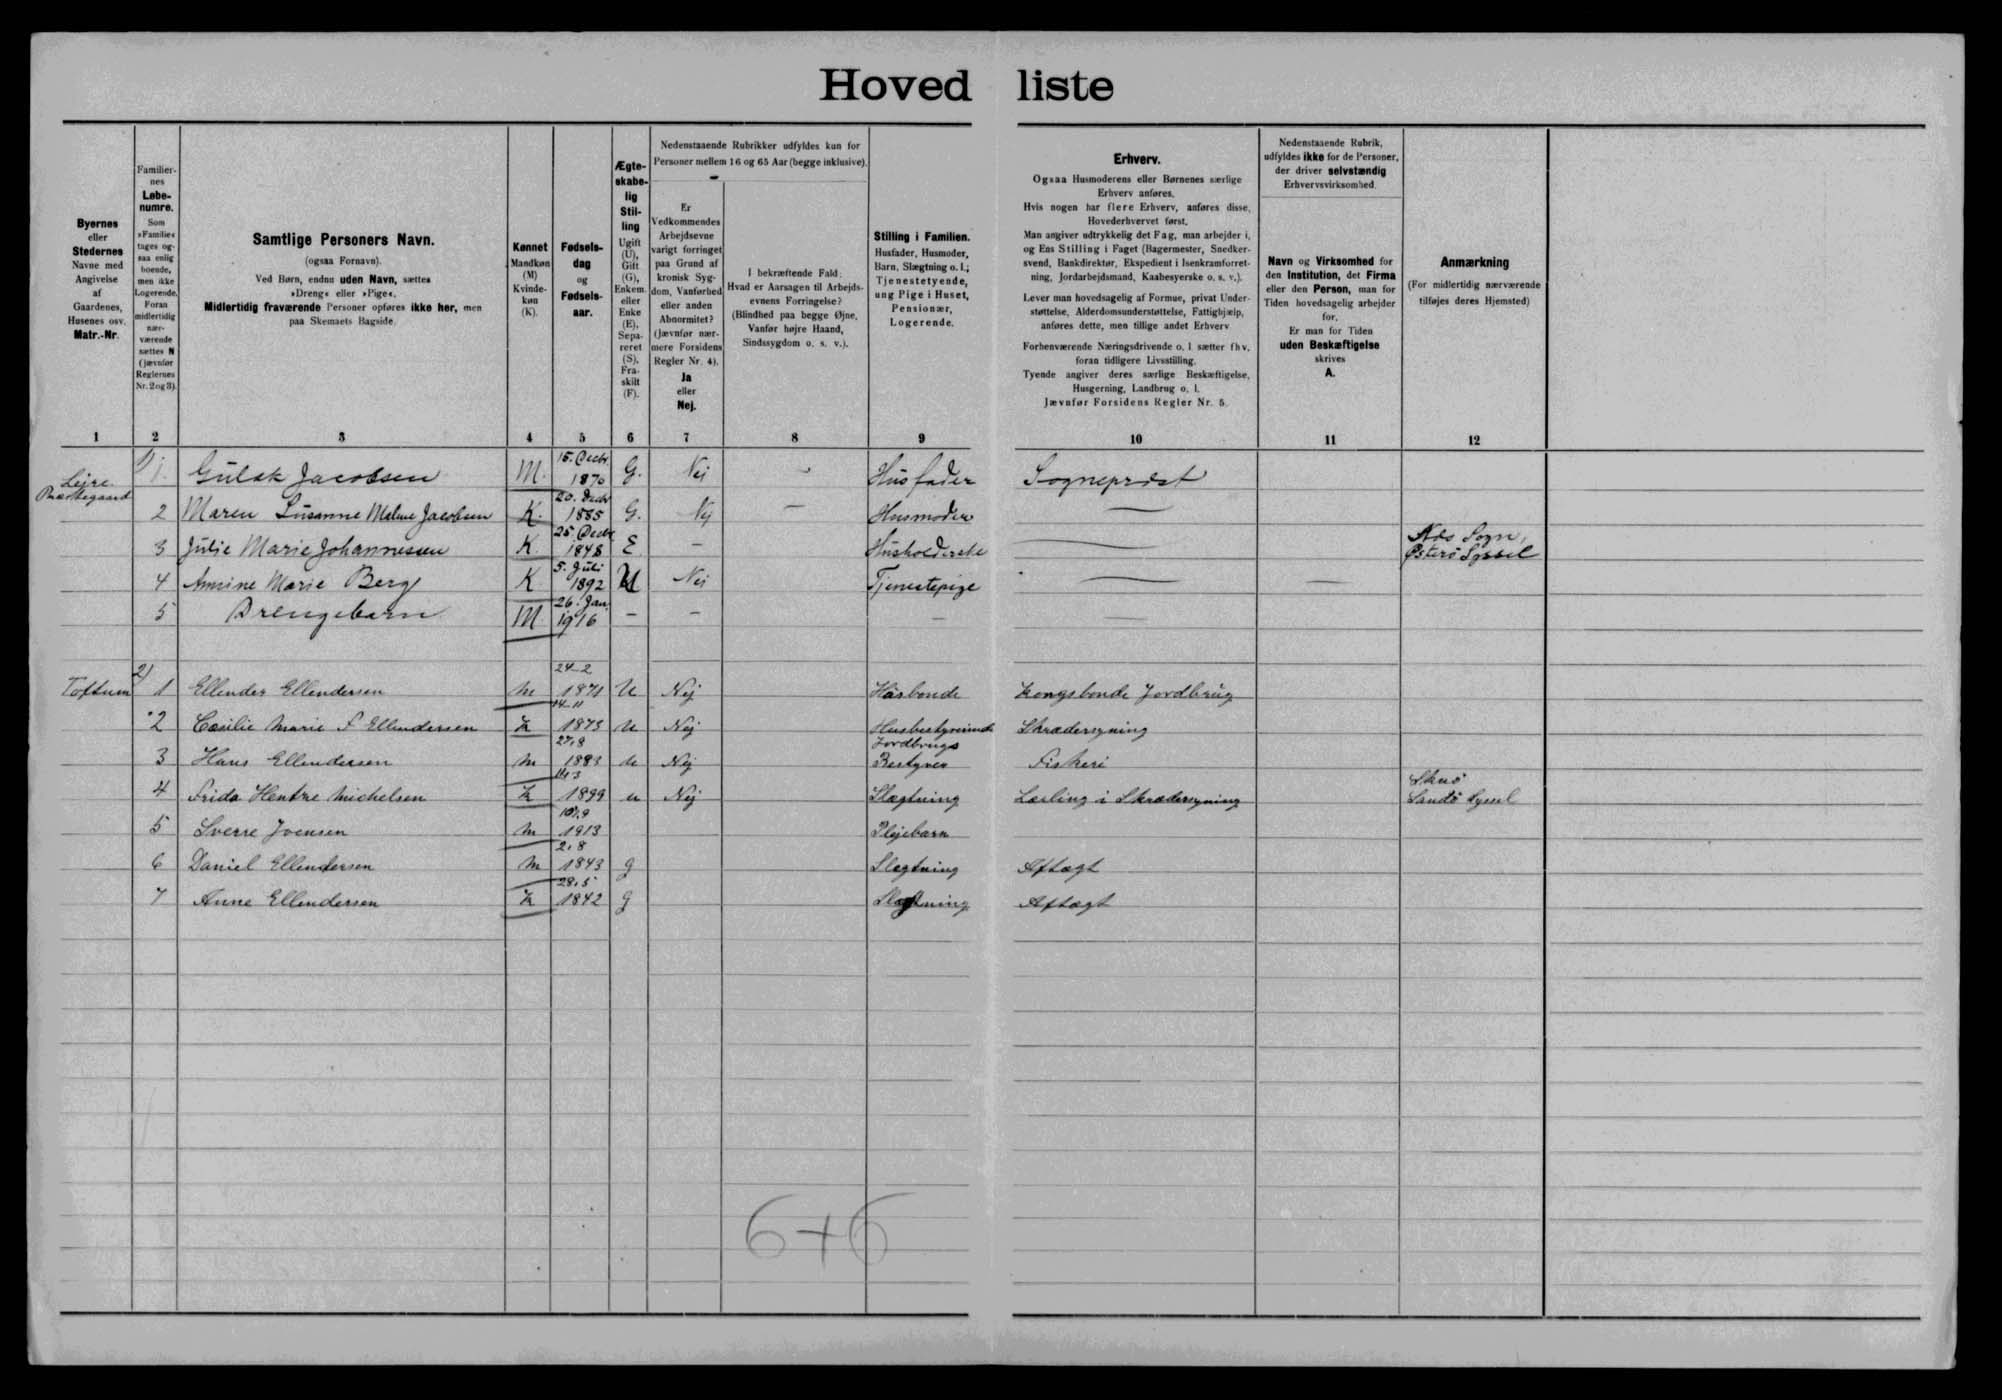 Hoved liste
Byernes
eller
Stedernes
Navne med
Angivelse
af
Gaardenes,
Husenes osv.
Matr.-Nr.
Familier-
nes
Løbe-
numre.
Som
»Familie«
tages og-
saa enlig
boende,
men ikke
Logerende.
Foran
midlertidig
nær-
værende
sættes N
(jævnfør
Reglernes
Nr. 2 og 3).
Samtlige Personers Navn.
(ogsaa Fornavn).
Ved Børn, endnu uden Navn, sættes
»Dreng« eller »Pige«.
Midlertidig fraværende Personer opføres ikke her, men
paa Skemaets Bagside.
Kønnet
Mandkøn
(M)
Kvinde-
køn
(K).
Fødsels-
dag
og
Fødsels-
aar.
Ægte-
skabe-
lig
Stil-
ling
Ugift
(U),
Gift
(G),
Enkem.
eller
Enke
(E),
Sepa-
reret
(S),
Fra-
skilt
(F).
Nedenstaaende Rubrikker udfyldes kun for
Personer mellem 16 og 65 Aar (begge inklusive).
Er
Vedkommendes
Arbejdsevne
varigt forringet
paa Grund af
kronisk Syg-
dom, Vanførhed
eller anden
Abnormitet?
(Jævnfør nær-
mere Forsidens
Regler Nr. 4).
Ja
eller
Nej.
I bekræftende Fald:
Hvad er Aarsagen til Arbejds-
evnens Forringelse?
(Blindhed paa begge Øjne,
Vanfør højre Haand,
Sindssygdom o. s. v.).
Stilling i Familien.
Husfader, Husmoder,
Barn, Slægtning o. l.;
Tjenestetyende,
ung Pige i Huset,
Pensionær,
Logerende.
Erhverv.
Ogsaa Husmoderens eller Børnenes særlige
Erhverv anføres.
Hvis nogen har flere Erhverv, anføres disse,
Hovederhvervet først.
Man angiver udtrykkelig det Fag, man arbejder i,
og Ens Stilling i Faget (Bagermester, Snedker-
svend, Bankdirektør, Ekspedient i Isenkramforret-
ning, Jordarbejdsmand, Kaabesyerske o. s. v.).
Lever man hovedsagelig af Formue, privat Under-
støttelse, Alderdomsunderstøttelse, Fattighjælp,
anføres dette, men tillige andet Erhverv
Forhenværende Næringsdrivende o. l. sætter fhv.
foran tidligere Livsstilling.
Tyende angiver deres særlige Beskæftigelse,
Husgerning, Landbrug o. l.
Jævnfør Forsidens Regler Nr. 5.
Nedenstaaende Rubrik,
udfyldes ikke for de Personer,
der driver selvstændig
Erhvervsvirksomhed.
Navn og Virksomhed for
den Institution, det Firma
eller den Person, man for
Tiden hovedsagelig arbejder
for.
Er man for Tiden
uden Beskæftigelse
skrives
A.
Anmærkning
(For midlertidig nærværende
tilføjes deres Hjemsted)
1 2 3 4 5 6 7 8 9 10 11 12
Lejre Præstegaard 1) 1. Gulak Jacobsen M. 15. Decbr. 1870 G. Nej - Husfader Sognepræst
2 Maren Susanne Malene Jacobsen K. 20. Decbr 1885 G. Nej — Husmoder —
3 Julie Marie Johannessen K 25. Decbr 1848 E — Husholderske — Næs Sogn, Østerö Syssel
4 Annine Marie Berg K 5. Juli 1892 U Nej Tjenestepige — —
5 Drengebarn M 26. Jan. 1916 — — — —
Toftum 2) 1 Ellender Ellendersen M 24-2 1871 U Nej Husbonde Kongsbonde Jordbrug
2 Cæsilie Marie F Ellendersen K 14-11 1873 U Nej Husbestyrerinde Skrædersyning
3 Hans Ellendersen M 27,8 1883 U Nej Jordbrugs Bestyrer Fiskeri
4 Frida Hentze Michelsen K 11,3 1899 U Nej Slægtning Lærling i Skrædersyning Skuö Sandö Syssel
5 Sverre Joensen M 1913 Plejebarn
6 Daniel Ellendersen M 2,8 1843 g Slægtning Aftægt
7 Anne Ellendersen K 28,5 1842 g Slægtning Aftægt
6+6